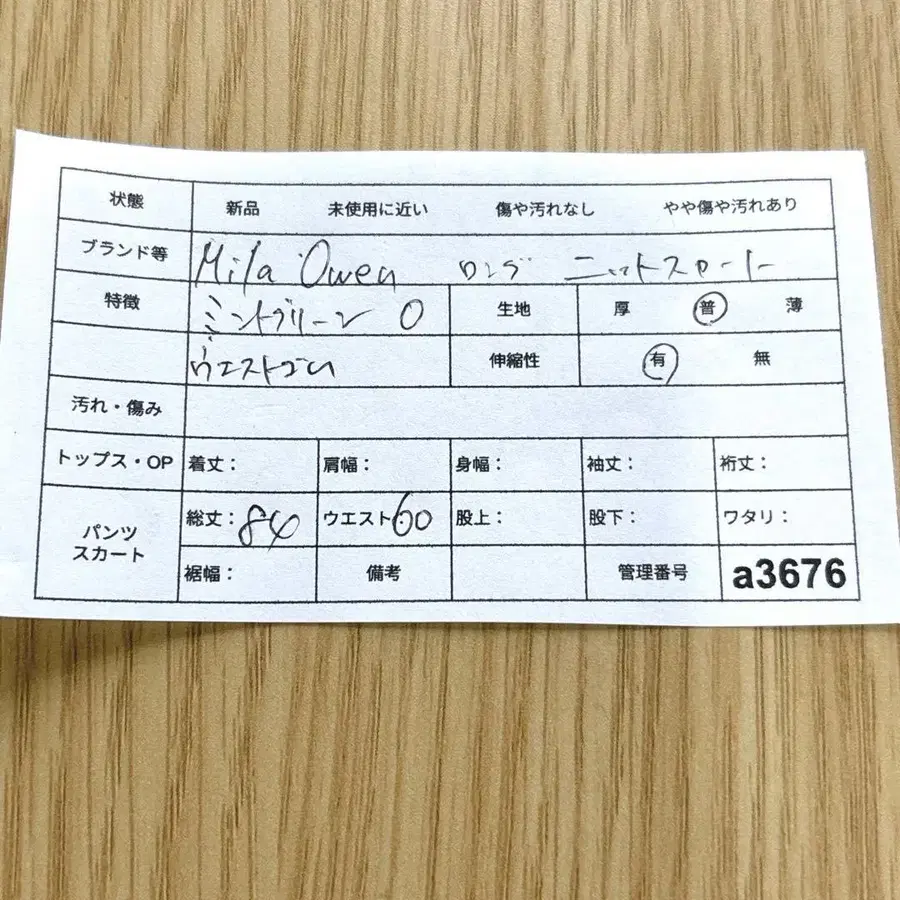 状態 新品 未使用に近い 傷や汚れなし やや傷や汚れあり
ブランド等 Mila Owen ロング ニットスカート
特徴 ミントグリーン 0 生地 厚 普 薄
ウエストゴム 伸縮性 有 無
汚れ・傷み
トップス・OP 着丈: 肩幅: 身幅: 袖丈: 裄丈:
パンツ スカート 総丈:84 ウエスト:60 股上: 股下: ワタリ:
裾幅: 備考 管理番号 a3676